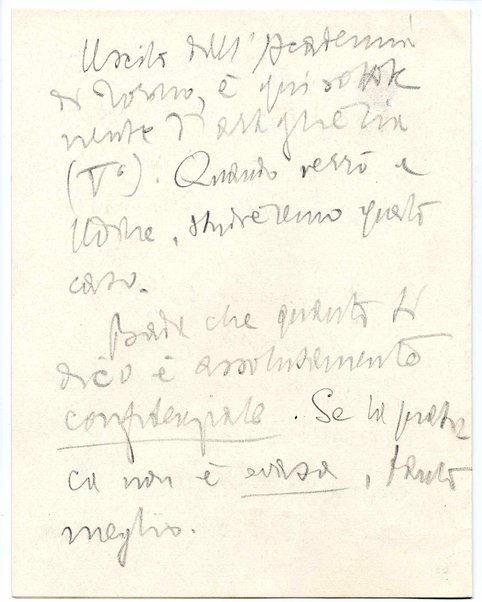 Uscito dall'Academia
di Torino, è qui sotto te
nente d'artiglieria
(T°). Quando verrò a
Udine, studieremo questo
caso.
Bada che quanto ti
dico è assolutamente
confidenziale. Se la prati
ca non è evasa, tanto
meglio.